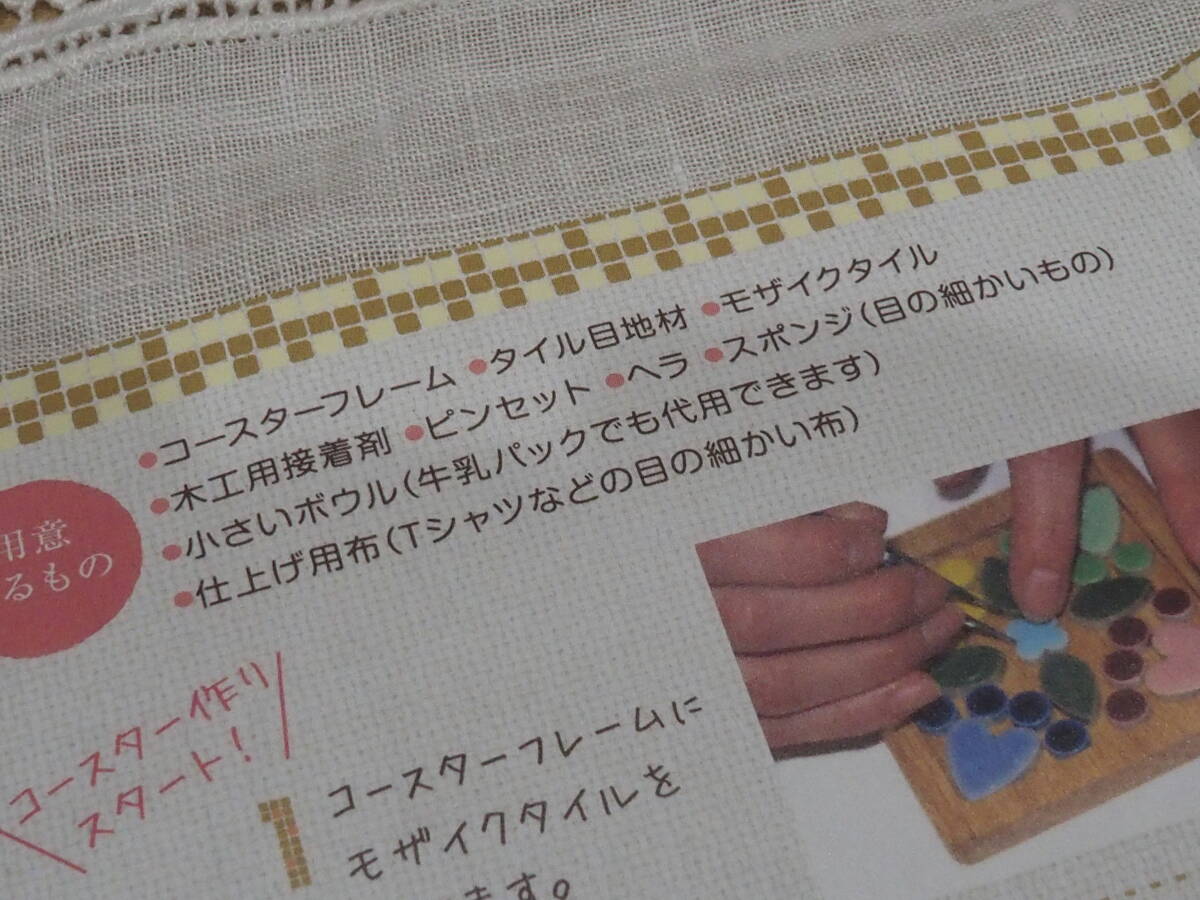 ●コースターフレーム ●タイル目地材 ●モザイクタイル
●木工用接着剤 ●ピンセット ●ヘラ ●スポンジ(目の細かいもの)
●小さいボウル(牛乳パックでも代用できます)
●仕上げ用布(Tシャツなどの目の細かい布)
用意
るもの
コースター作り
スタート!
1 コースターフレームに
モザイクタイルを
ます。